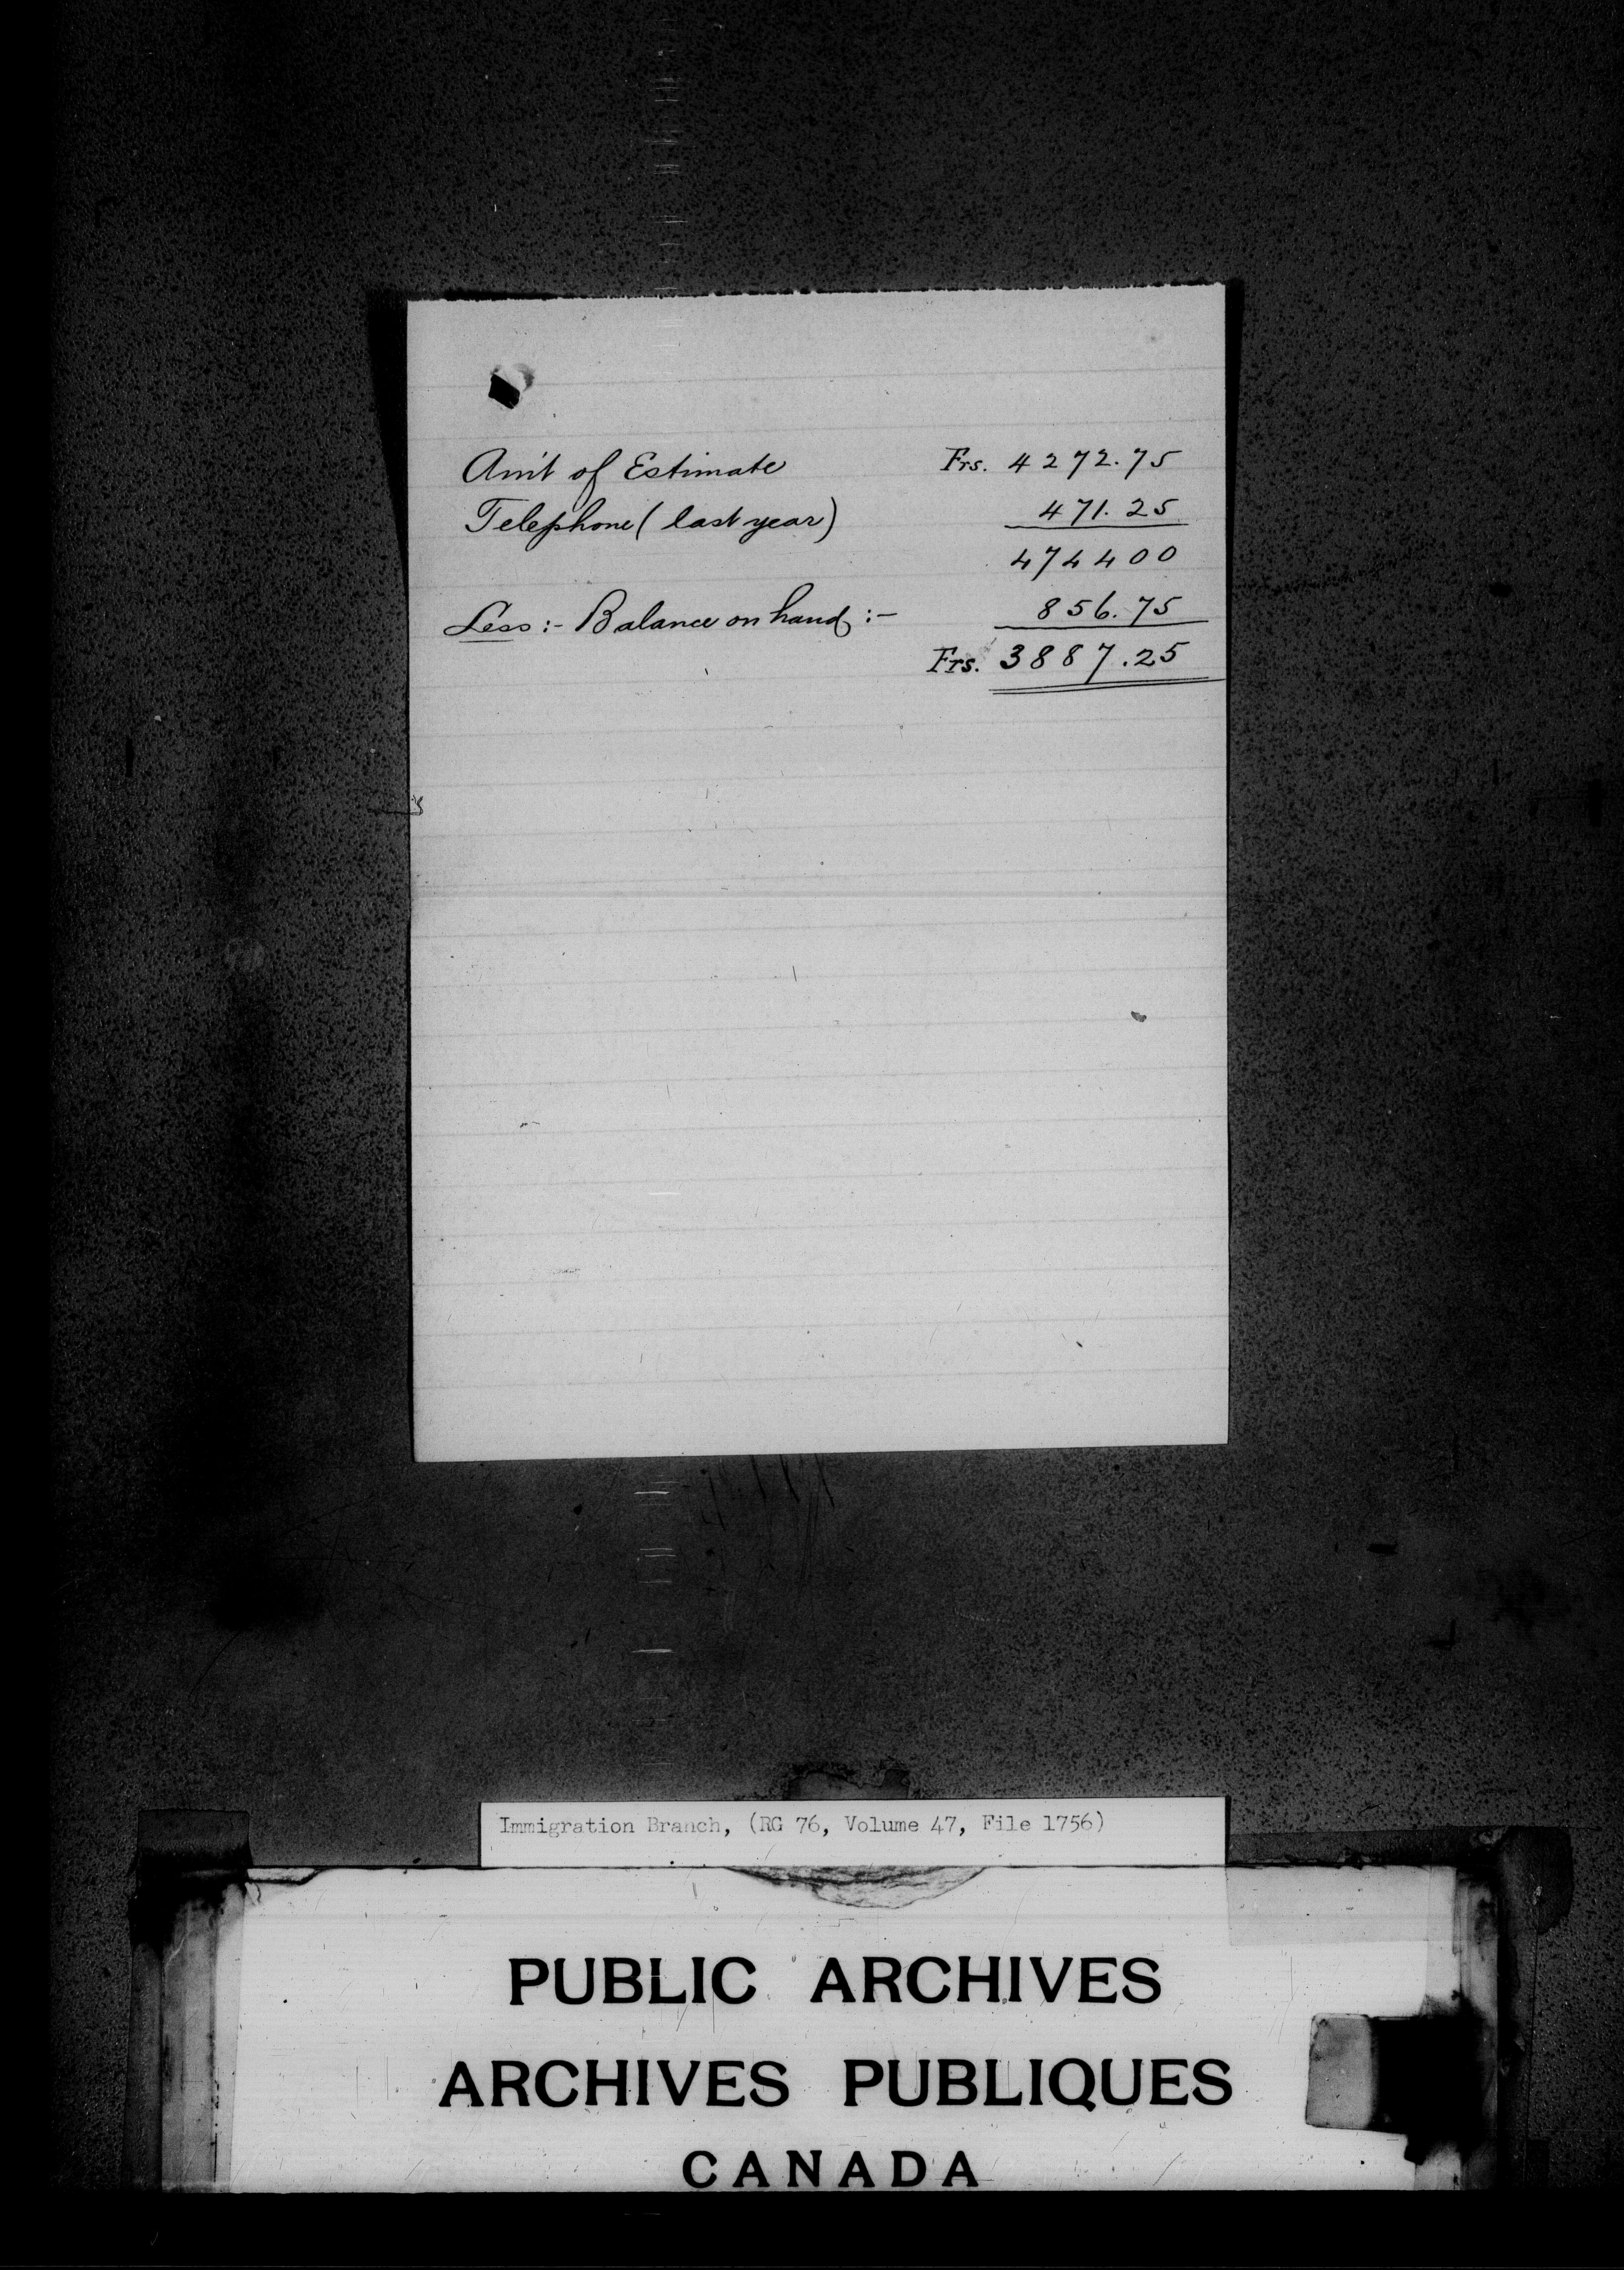 Am't of Estimate Frs. 4272.75
Telephone (last year) 471.25
474400
Less :- Balance on hand :- 856.75
Frs. 3887.25
Immigration Branch, (RG 76, Volume 47, File 1756)
PUBLIC ARCHIVES
ARCHIVES PUBLIQUES
CANADA